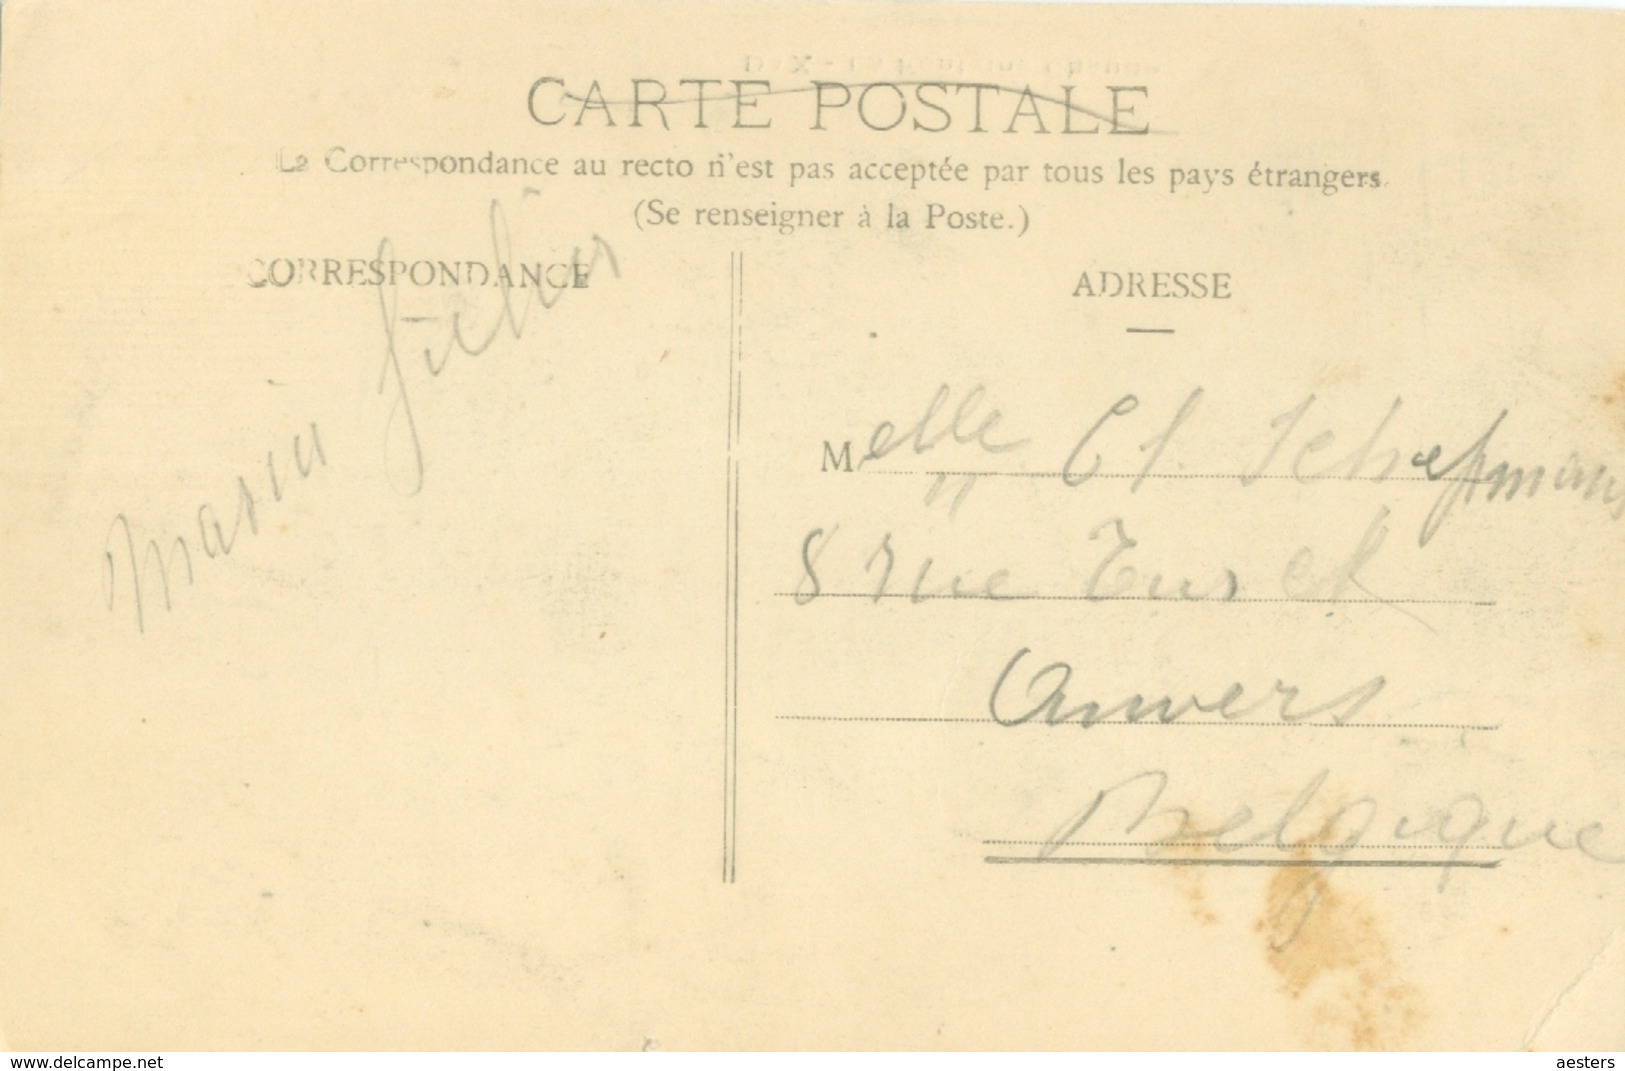 CARTE POSTALE
La Correspondance au recto n'est pas acceptée par tous les pays étrangers.
(Se renseigner à la Poste.)
CORRESPONDANCE
ADRESSE
Melle Cl. Schepmans
8 rue
Anvers
Belgique
www.delcampe.net
aesters